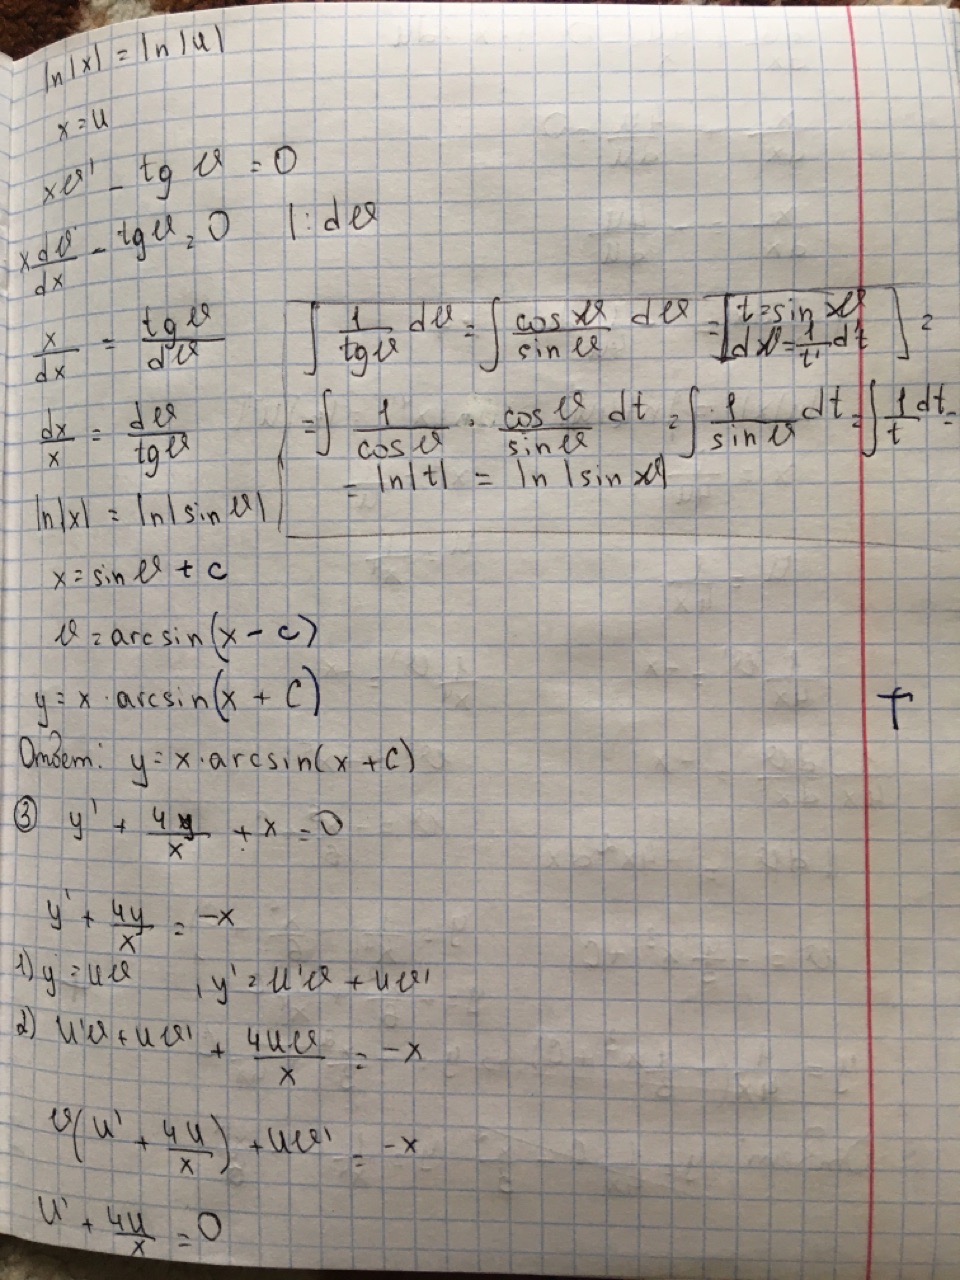 ln|x| = ln|u|
x = u
xv' - tg v = 0
x dv/dx - tg v = 0 |: dv
x/dx = tg v/dv
dx/x = dv/tg v
ln|x| = ln|sin v|
∫ 1/tg v dv = ∫ cos v/sin v dv = [t = sin v
dv = 1/t' dt] =
= ∫ 1/cos v · cos v/sin v dt = ∫ 1/sin v dt = ∫ 1/t dt =
= ln|t| = ln|sin v|
x = sin v + c
v = arcsin(x - c)
y = x · arcsin(x + C)
Ответ: y = x · arcsin(x + C)
③ y' + 4y/x + x = 0
y' + 4y/x = -x
1) y = uv , y' = u'v + uv'
2) u'v + uv' + 4uv/x = -x
v(u' + 4u/x) + uv' = -x
u' + 4u/x = 0